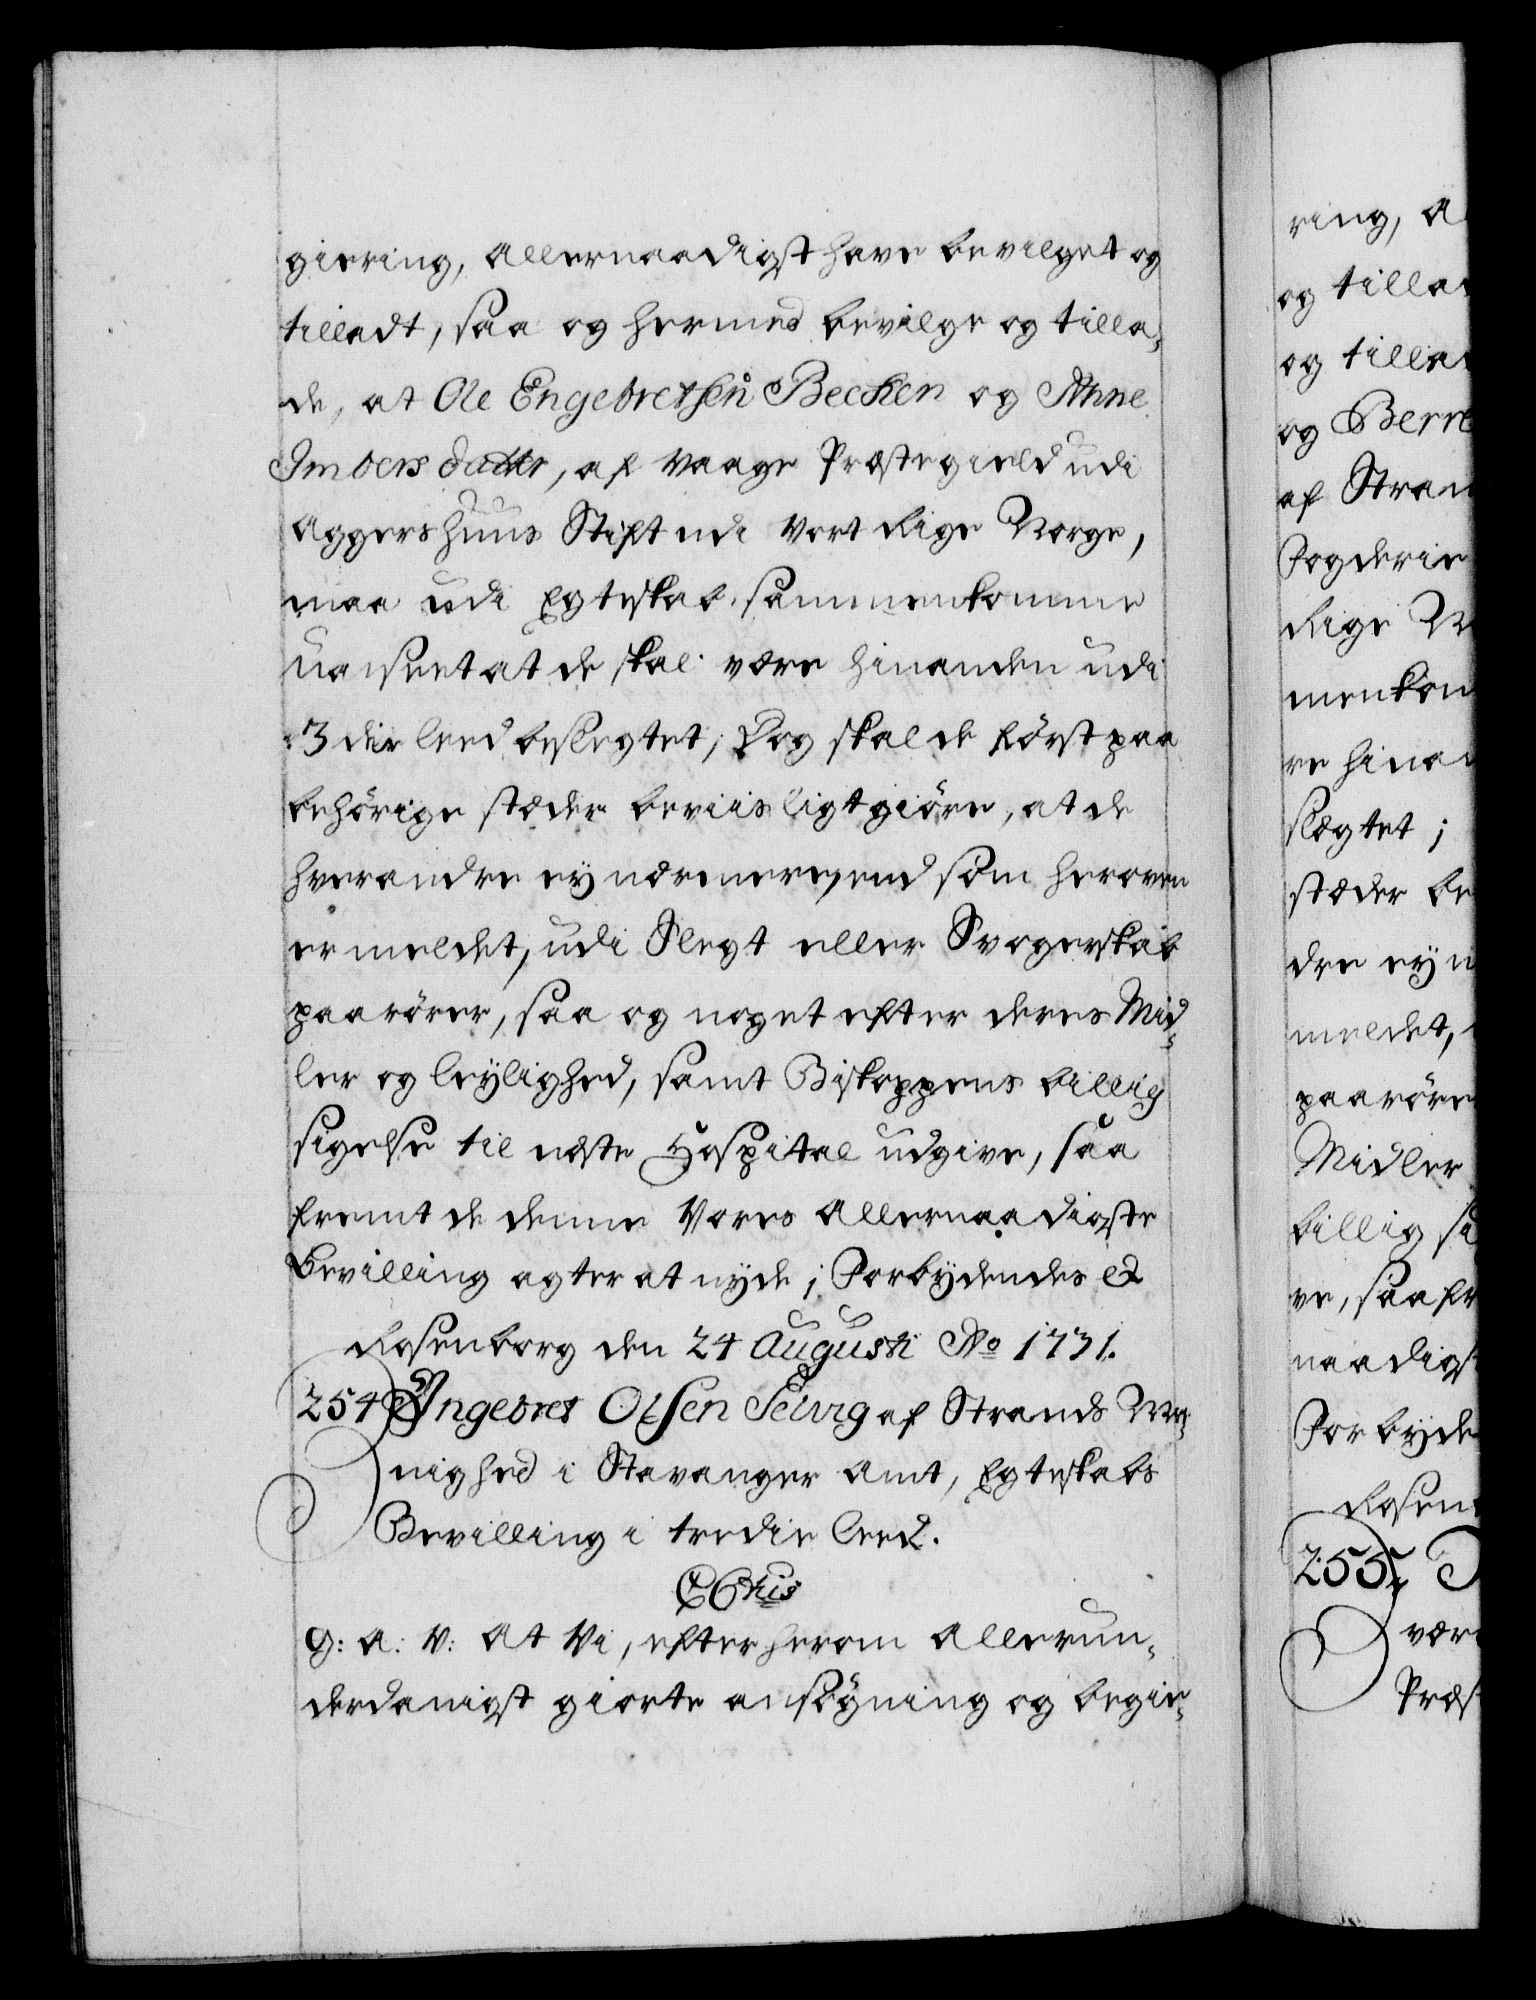 giering, Allernaadigst have bevilget og
tilladt, saa og hermed bevilge og tilla-
de, at Ole Engebretsen Becken og Anne
Imbers datter, af Vaage Præstegield udi
Aggershuus Stift udi Vort Rige Norge,
maa udi Egteskab sammenkomme
uanseet at de skal være hinanden udi
3die leed beslegtet; Dog skal de först paa
behörige stæder beviisligtgiöre, at de
hverandre ey nærmere, end som heroven
er meldet, udi Slegt eller Svogerskab
paarörer, saa og noget efter deres Mid-
ler og leylighed, samt Biskoppens billig
sigelse til næste Hospital udgive, saa
fremt de denne Vores Allernaadigste
Bevilling agter at nyde; Forbydendes &
Rosenborg den 24 Augusti Ao 1731.
254 Ingebret Olsen af Strands Me-
nighed i Stavanger Amt, Egteskabs
Bevilling i tredie leed.
G: A: V: At Vi, efter herom Allerun-
derdanigst giorte ansögning og begie-
ring, A
og tilla
og tilla
og Berre
af Stran
Fogderie
Rige N
menkom
re hinan
slægtet;
stæder be
dre ey n
meldet,
paaröre
Midler
billig si
ve, saa fr
naadigs
Forbyde
Rosen
255
være
Præs